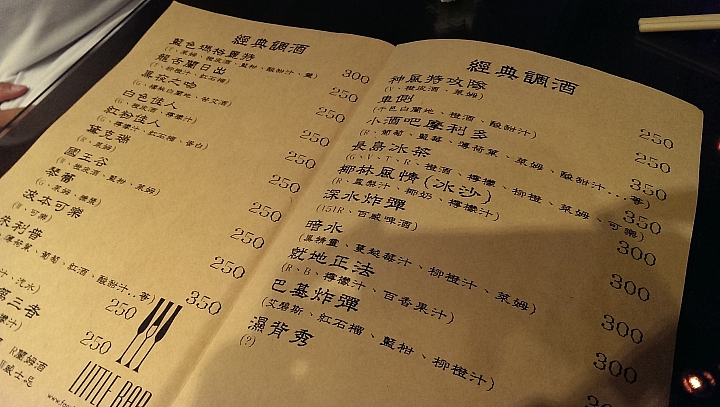 經典調酒
藍色瑪格麗特 300
(T、萊姆、橙皮酒、藍柑、酸甜汁、鹽)
龍舌蘭日出 250
(T、柳橙汁、紅石榴)
黑夜之吻 250
白色佳人 250
(G、橙皮酒、檸檬汁)
紅粉佳人 250
(G、檸檬汁、紅石榴、蛋白)
(R、萊姆)
國王谷 250
(R、橙皮酒、藍柑、萊姆)
琴蕾 250
(G、萊姆、糖漿)
波本可樂 250
(B、可樂)
朱利普 350
薄荷葉、葡萄、紅酒、酸甜汁...等)
250
汁、汽水)
第三者 250
檸檬汁)
R蘭姆酒
威士忌
LITTLE BAR
經典調酒
神風特攻隊 250
(V、橙皮酒、萊姆)
車側 250
(卡邑白蘭地、橙酒、酸甜汁)
小酒吧摩利多 350
(R、葡萄、藍莓、薄荷葉、萊姆、酸甜汁...等)
長島冰茶 350
(G、V、T、R、橙酒、檸檬、柳橙、萊姆、可樂)
椰林風情(冰沙) 300
(R、鳳梨汁、椰奶、檸檬汁)
深水炸彈 300
(151R、百威啤酒)
暗水 300
(黑精靈、蔓越莓汁、柳橙汁、萊姆)
就地正法 300
(R、B、檸檬汁、百香果汁)
巴基炸彈 300
(艾碧斯、紅石榴、藍柑、柳橙汁)
濕背秀
(?)